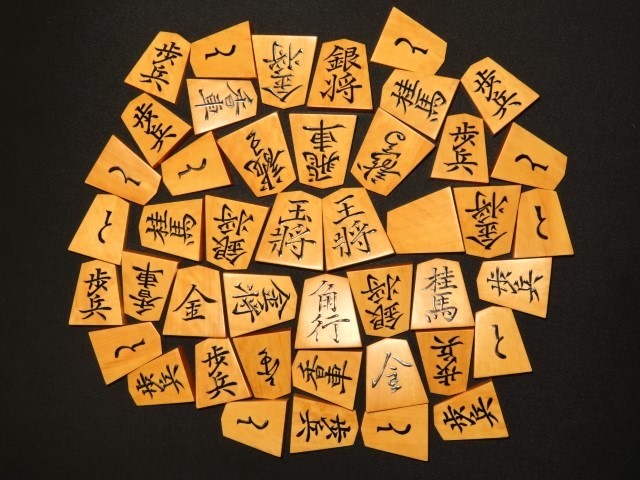 歩兵
と
金将
銀将
と
香車
桂馬
歩兵
歩兵
と
と
飛車
歩兵
と
と
桂馬
銀将
玉将
王将
金将
と
歩兵
香車
金
金将
角行
銀将
桂馬
歩兵
と
歩兵
歩兵
香車
歩兵
と
と
歩兵
と
歩兵